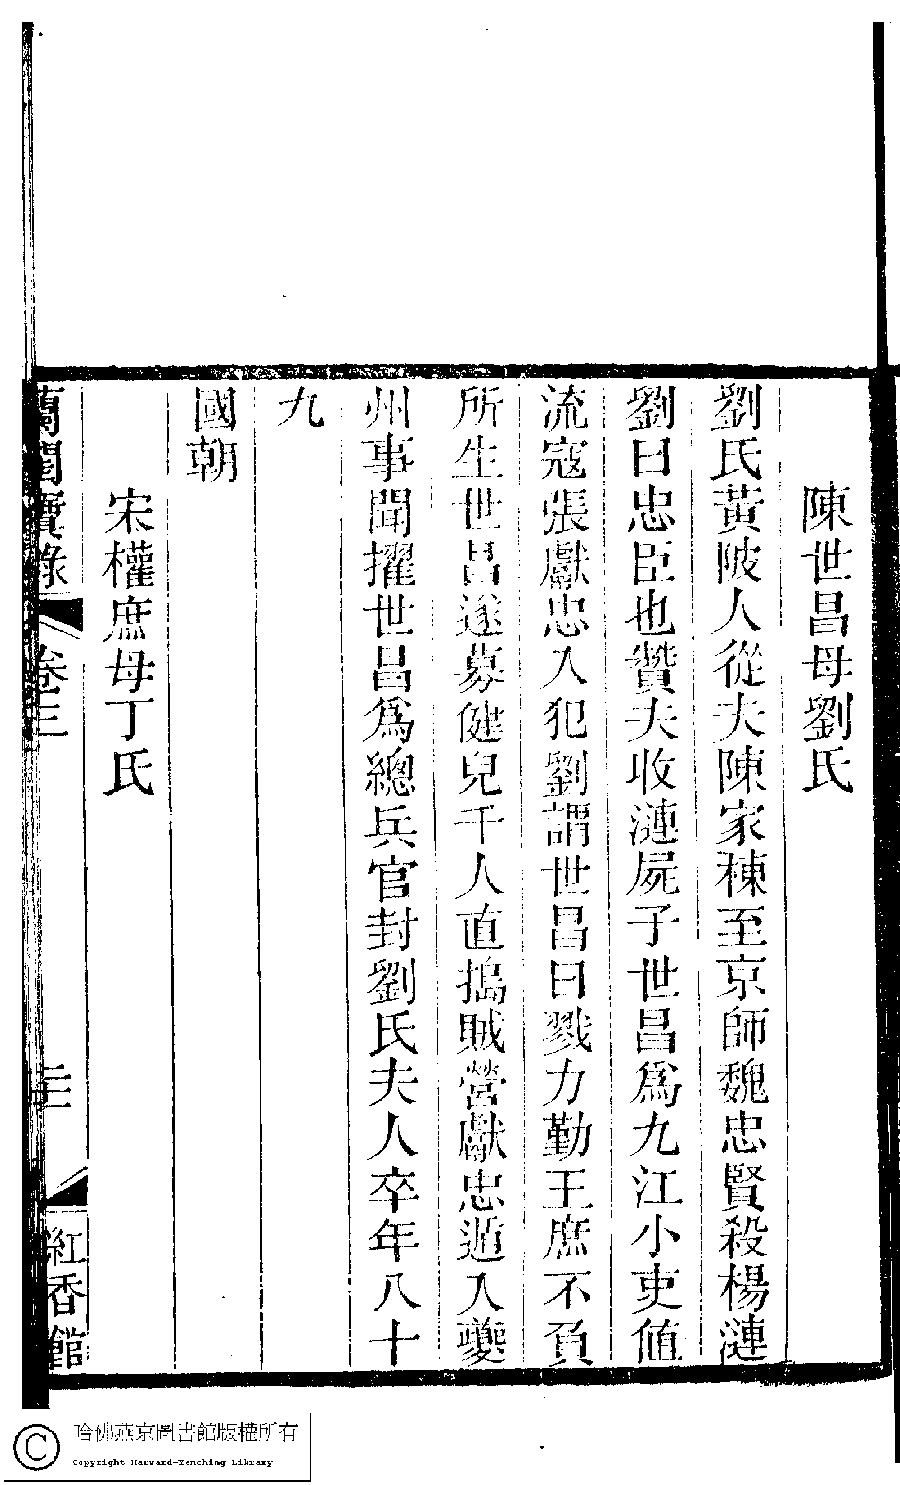 陳世昌母劉氏
劉氏黃陂人從夫陳家棟至京師魏忠賢殺楊漣
劉曰忠臣也贊夫收漣屍子世昌爲九江小吏値
流寇張獻忠入犯劉謂世昌曰戮力勤王庶不負
所生世昌遂募健兒千人直搗賊營獻忠遁入夔
州事聞擢世昌爲總兵官封劉氏夫人卒年八十
九
國朝
宋權庶母丁氏
蘭閨寶錄 卷三 二十一 紅香館
哈佛燕京圖書館版權所有
Copyright Harvard-Yenching Library